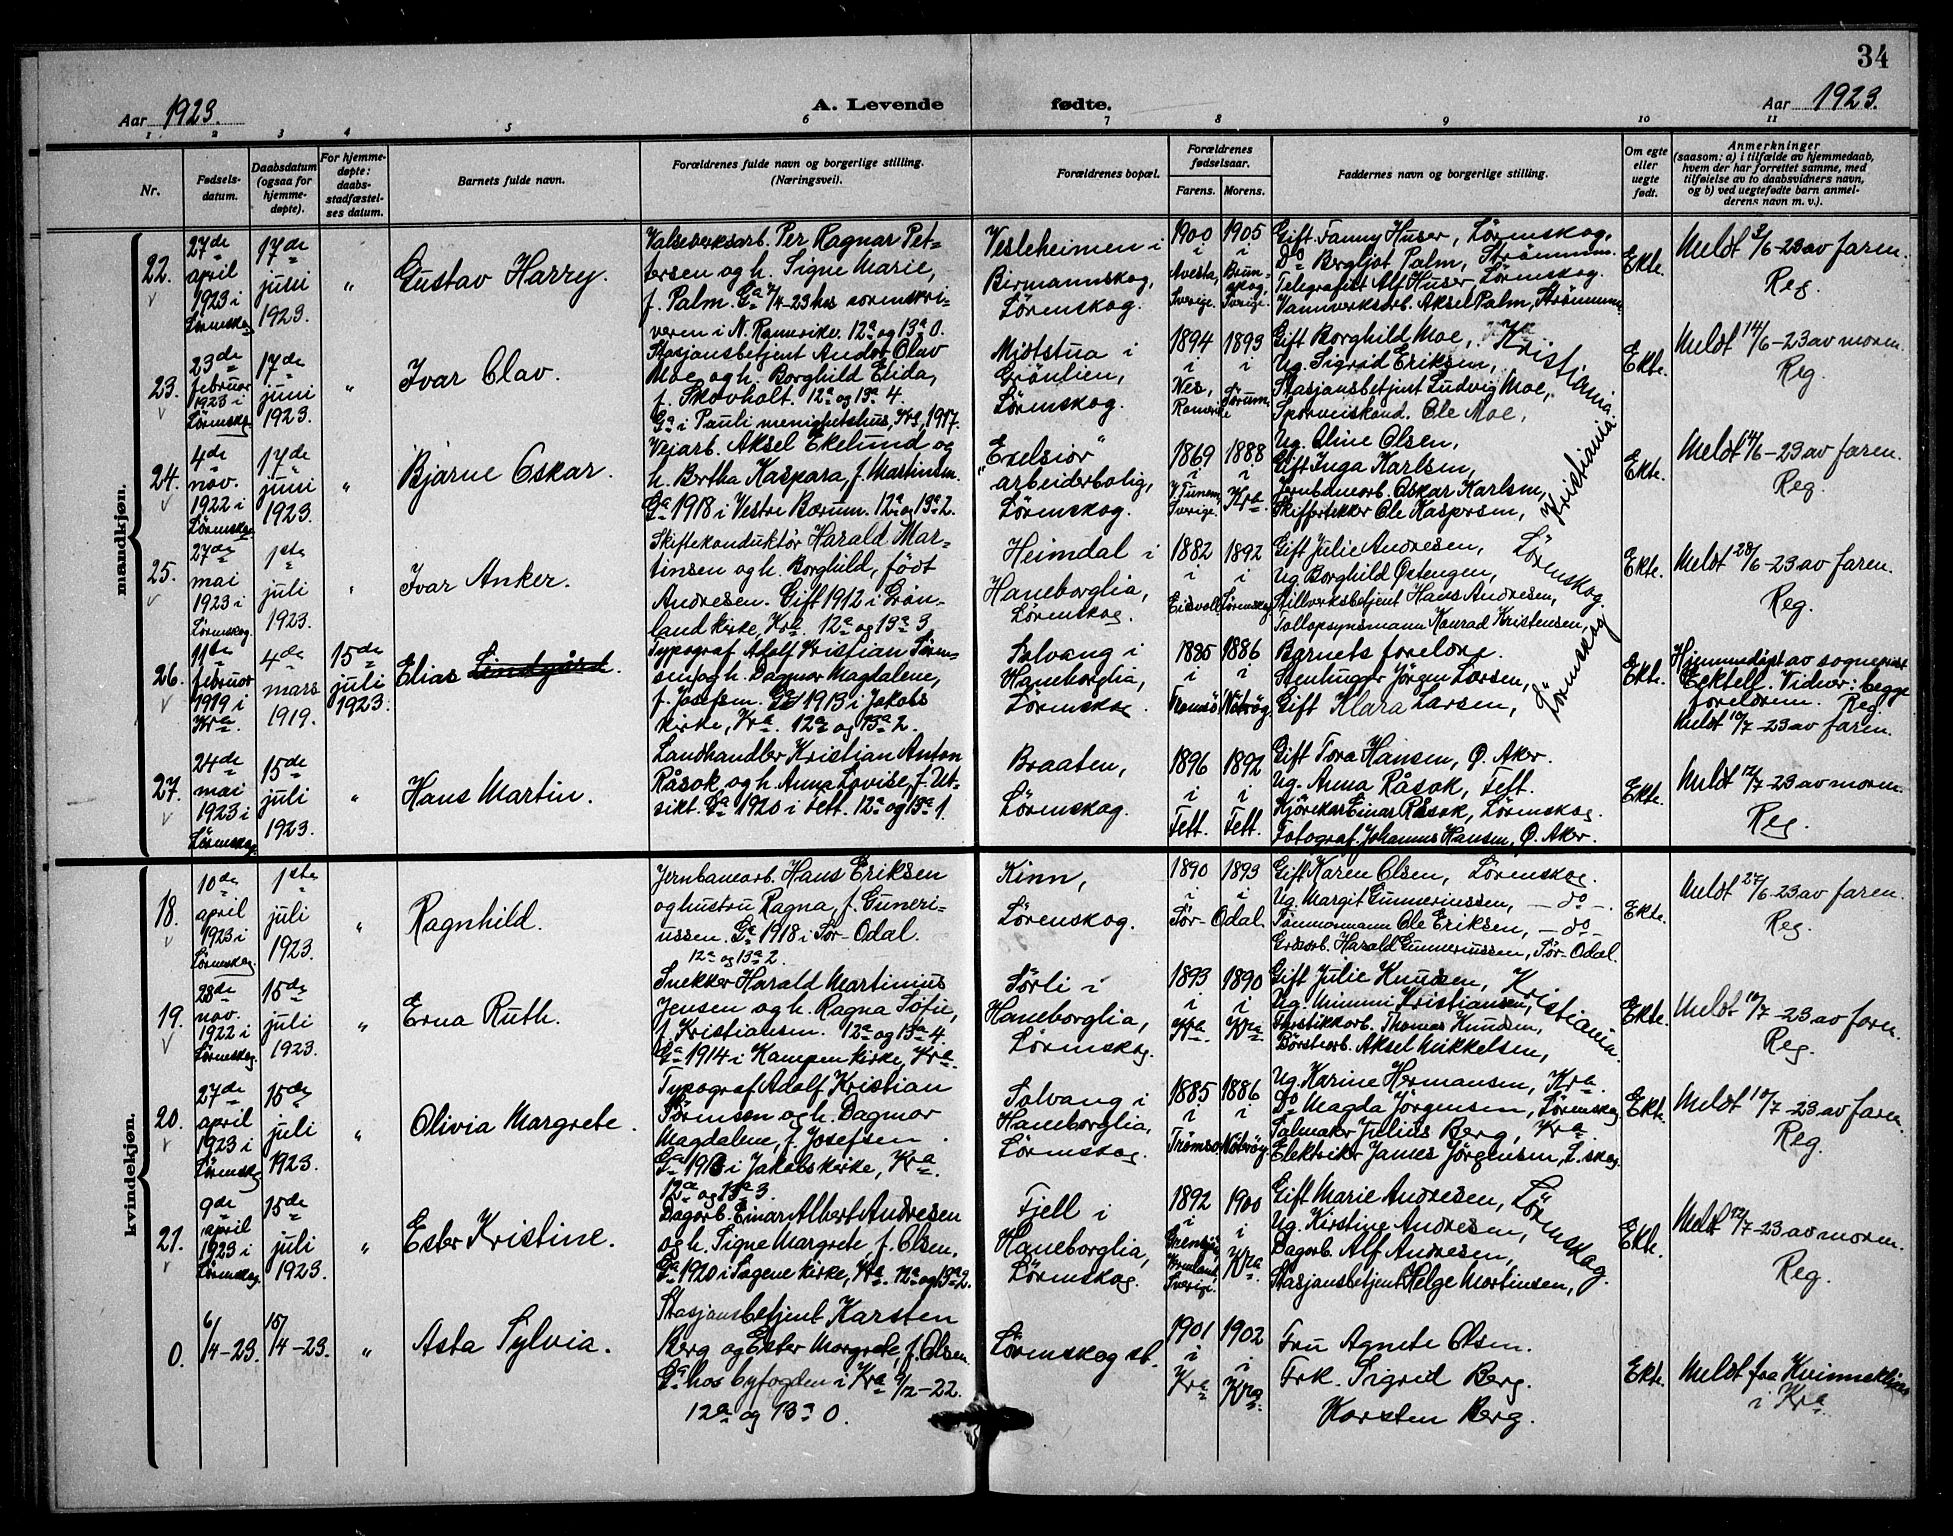 34
Aar 1923.
A. Levende fødte.
Aar 1923.
1. 2 3 4 5 6 7 8 9 10 11
Nr.
Fødsels-
datum.
Daabsdatum
(ogsaa for
hjemme-
døpte).
For hjemme-
døpte:
daabs-
stadfæstel-
ses datum.
Barnets fulde navn.
Forældrenes fulde navn og borgerlige stilling.
(Næringsvei).
Forældrenes bopæl.
Forældrenes
fødselsaar.
Farens. Morens.
Faddernes navn og borgerlige stilling.
Om egte
eller
uegte
født.
Anmerkninger
(saasom: a) i tilfælde av hjemmedaab,
hvem der har forrettet samme, med
tilføielse av to daabsvidners navn,
og b) ved uegtefødte barn anmel-
derens navn m. v.).
mandkjøn.
22.
27de
april
1923 i
Lørenskog
17de
juni
1923.
"
Gustav Harry.
Valseverksarb. Per Ragnar Pet-
tersen og h. Signe Marie,
f. Palm. Ga /4-23 hos sorenskri-
veren i N. Romerike. 12a og 13a 0.
Vesleheimen i
Birmannskog,
Lørenskog.
1900
i
Avesta,
Sverige.
1905
i
Brun-
skog,
Sverige.
Gift Fanny Huser, Lørenskog.
Do Bergliot Palm, Strømmen.
Telegrafist Alf Huser, Lørenskog.
Vannverksarb. Aksel Palm, Strømmen
Ekte.
Meldt 2/6-23 av faren.
Reg.
23.
23de
februar
1923 i
Lørenskog
17de
juni
1923.
"
Ivar Olav.
Stasjonsbetjent Andor Olav
Moe, og h. Borghild Elida,
f. Skovholt. 12a og 13a 4.
Ga i Pauli menighetshus, Kra, 1917.
Midtstua i
Grönlien,
Lørenskog.
1894
i
Nes,
Romerike
1893
i
Sørum.
Gift Borghild Moe,
Ug. Sigrid Eriksen,
Stasjonsbetjent Ludvig Moe,
Sporveiskond. Ole Moe,
Kristiania.
Ekte.
Meldt 14/6-23 av moren.
Reg.
24.
4de
nov.
1922 i
Lørenskog
17de
juni
1923.
"
Bjarne Oskar.
Veiarb. Aksel Ekelund og
h. Bertha Kaspara, f. Martinsen.
Ga 1918 i Vestre Bærum. 12a og 13a 2.
"Exelsiör"
arbeiderbolig,
Lørenskog.
1869
i
Sverige.
1888
i
Kra.
Ug. Oline Olsen,
Gift Inga Karlsen,
Jernbanearb. Oskar Karlsen,
Skiffertekker Ole Kaspersen,
Kristiania.
Ekte.
Meldt 14/6-23 av faren.
Reg.
25.
27de
mai
1923 i
Lørenskog.
1ste
juli
1923.
"
Ivar Anker.
Skiftekonduktør Harald Mar-
tinsen og h. Borghild, født
Andresen. Gift 1912 i Grøn-
land kirke, Kra. 12a og 13a 3
Heimdal i
Haneborglia,
Lørenskog.
1882
i
Eidsvoll
1892
i
Lørenskog
Gift Julie Andresen,
Ug. Borghild Østengen,
Stillverksbetjent Hans Andresen,
Tollopsynsmann Konrad Kristensen,
Lørenskog.
Ekte.
Meldt 28/6-23 av faren.
Reg.
26.
11te
februar
1919 i
Kra.
4de
mars
1919.
15de
juli
1923.
Elias Lindgård.
Typograf Adolf Kristian Sören-
sen og h. Dagmar Magdalene,
f. Josefsen. Ga 1913 i Jakobs
kirke, Kra. 12a og 13a 2.
Solvang i
Haneborglia,
Lørenskog
1885
i
Tromsö
1886
i
Nöteröy
Barnets foreldre.
Stenhugger Jörgen Larsen,
Gift Klara Larsen,
Lørenskog
Ekte.
Hjemmedöpt av sogneprest
Eektell. Vidner: begge
foreldrene. Reg.
Meldt 10/7-23 av faren.
27.
24de
mai
1923 i
Lørenskog.
15de
juli
1923.
"
Hans Martin.
Landhandler Kristian Anton
Råsok, og h. Anna Lovise, f. Ut-
sikt. Ga 1920 i Fett. 12a og 13a 1.
Braaten,
Lørenskog.
1896
i
Fett.
1892
i
Fett.
Gift Tora Hansen, Ø. Aker.
Ug. Anna Råsok, Fett.
Kjörekar Einar Råsok, Lörenskog.
Fotograf Johannes Hansen, Ø. Aker.
Ekte.
Meldt 12/7-23 av moren.
Reg.
kvindekjøn.
18.
10de
april
1923 i
Lørenskog.
1ste
juli
1923.
"
Ragnhild.
Jernbanearb. Hans Eriksen
og hustru Ragna, f. Guneri-
ussen. Ga 1918 i Sör-Odal.
12a og 13a 2.
Kinn,
Lørenskog.
1890
i
Sör-
1893
i
Odal.
Gift Karen Olsen, Lörenskog.
Ug. Margit Gunneriussen, - do -
Tömmermann Ole Eriksen, - do -
Grdsarb. Harald Gunneriussen, Sör-Odal.
Ekte.
Meldt 27/6-23 av faren.
Reg.
19.
28de
nov.
1922 i
Lørenskog.
15de
juli
1923.
"
Erna Ruth.
Snekker Harald Martinius
Jensen og h. Ragna Sofie,
f. Kristiansen. 12a og 13a 4.
Ga 1914 i Kampen kirke, Kra.
Sörli i
Haneborglia,
Lørenskog.
1893
i
Kra.
1890
i
Kra
Gift Julie Knudsen,
Ug. Mimmi Kristiansen,
Fyrstikkarb. Thomas Knudsen,
Börstearb. Aksel Mikkelsen,
Kristiania.
Ekte.
Meldt 10/7-23 av faren
Reg.
20.
27de
april
1923 i
Lørenskog
15de
juli
1923.
"
Olivia Margrete.
Typograf Adolf Kristian
Sörensen og h. Dagmar
Magdalene, f. Josefsen.
Ga 1913 i Jakobs kirke, Kra
12a og 13a 3.
Solvang i
Haneborglia,
Lørenskog.
1885
i
Tromsö
1886
i
Nöteröy
Ug. Karine Hermansen, Kra.
Do Magda Jörgensen, Lörenskog
Salmaker Julius Berg, Kra
Elektriker James Jörgensen, L.skog.
Ekte.
Meldt 10/7-23 av faren.
Reg.
21.
9de
april
1923 i
Lørenskog.
15de
juli
1923.
"
Ester Kristine.
Dagarb. Einar Albert Andresen
og h. Signe Margrete, f. Olsen.
Ga 1920 i Sagene kirke, Kra. 12a og 13a 2.
Fjell i
Haneborglia,
Lørenskog.
1892
i
Sverige.
1900
i
Kra
Gift Marie Andresen,
Ug. Kirstine Andresen,
Dagarb. Alf Andresen,
Stasjonsbetjent Helge Martinsen,
Lørenskog.
Ekte.
Meldt 12/7-23 av moren.
Reg.
0.
6/4-23.
15/4-23.
"
Asta Sylvia.
Stasjonsbetjent Karsten
Berg og Ester Margrete, f. Olsen
Ga hos byfogden i Kra 9/12-22.
12a og 13a 0.
Lørenskog st.
1901
i
Kra
1902
i
Kra.
Fru Agnete Olsen.
Frk. Sigrid Berg.
Karsten Berg.
Ekte.
Meldt fra Kvinneklinikken
i Kra.